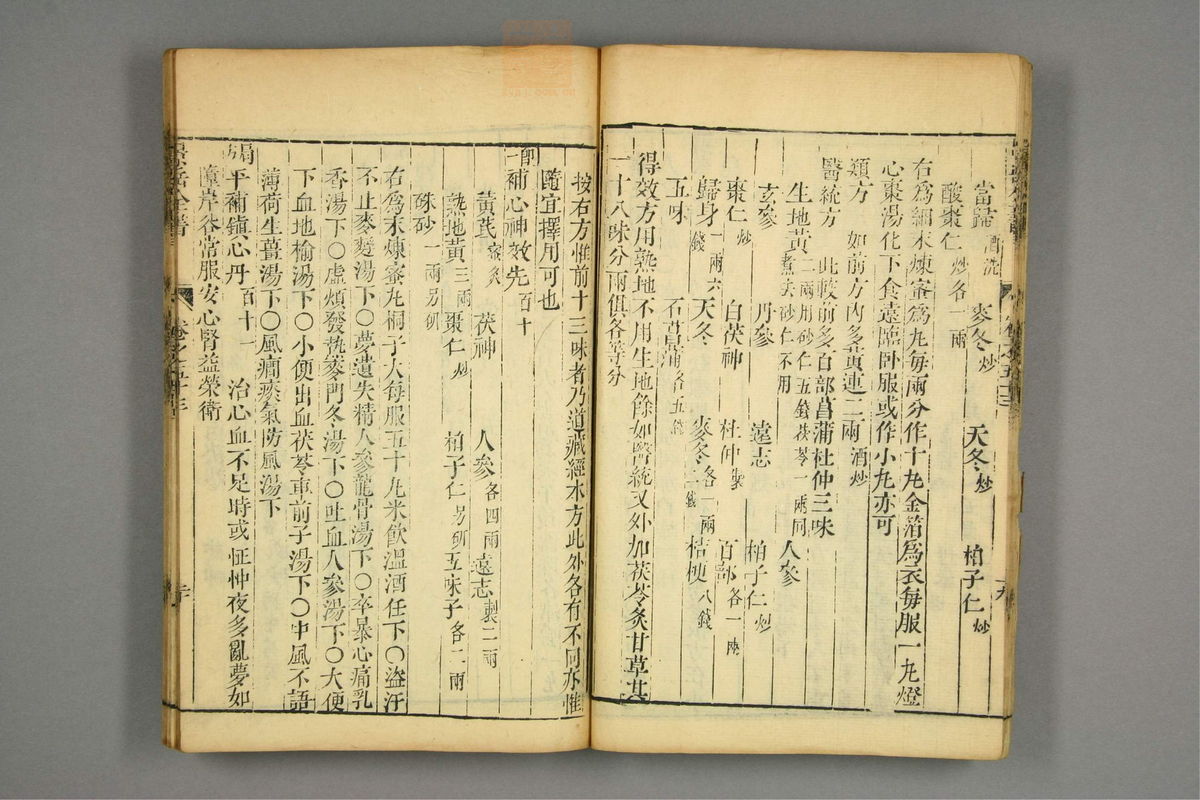 當歸酒洗 麥冬炒 天冬炒 柏子仁炒
酸棗仁炒各一兩
右爲細末煉蜜爲丸每兩分作十丸金箔爲衣每服一丸燈
心棗湯化下食遠臨卧服或作小丸亦可
類方 如前方內多黃連二兩酒炒
醫統方 此較前多百部菖蒲杜仲三味
生地黃二兩用砂仁五錢茯苓一兩同煮去砂仁不用 人參
玄參 丹參 遠志
棗仁炒 白茯神 杜仲製 柏子仁炒
歸身一兩六錢 天冬 麥冬各一兩二錢 百部各一兩
五味 石菖蒲各五錢 桔梗八錢
得效方用熟地不用生地餘如醫統又外加茯苓炙甘草共
一十八味分兩俱各等分
按右方惟前十三味者乃道藏經本方此外各有不同亦惟
隨宜擇用可也
補心神效丸百十
黃芪蜜炙 茯神 人參各四兩 遠志製二兩
熟地黃三兩 棗仁炒 柏子仁另研 五味子各二兩
硃砂一兩另研
右爲末煉蜜丸桐子大每服五十丸米飲溫酒任下〇盜汗
不止麥麩湯下〇夢遺失精人參龍骨湯下〇卒暴心痛乳
香湯下〇虛煩發熱麥門冬湯下〇吐血人參湯下〇大便
下血地榆湯下〇小便出血茯苓車前子湯下〇中風不語
薄荷生薑湯下〇風癇痰氣防風湯下
平補鎮心丹百十一 治心血不足時或怔忡夜多亂夢如
墮岸谷常服安心腎益榮衛
景岳全書
卷之五十三